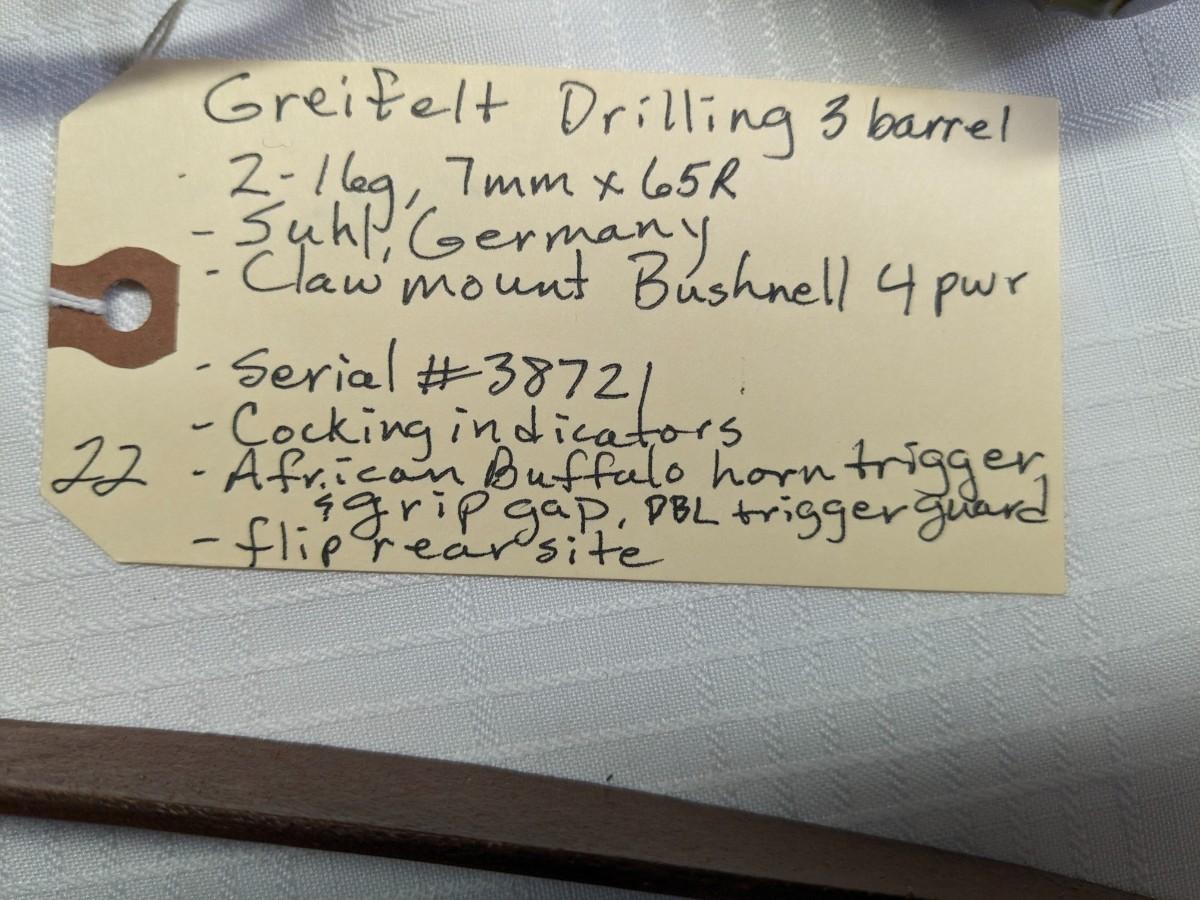 Greifelt Drilling 3 barrel
- 2-16g, 7mm x 65R
- Suhl, Germany
- Claw mount Bushnell 4 pwr
- Serial #38721
- Cocking indicators
22 - African Buffalo horn trigger
& grip gap, DBL trigger guard
- flip rear site